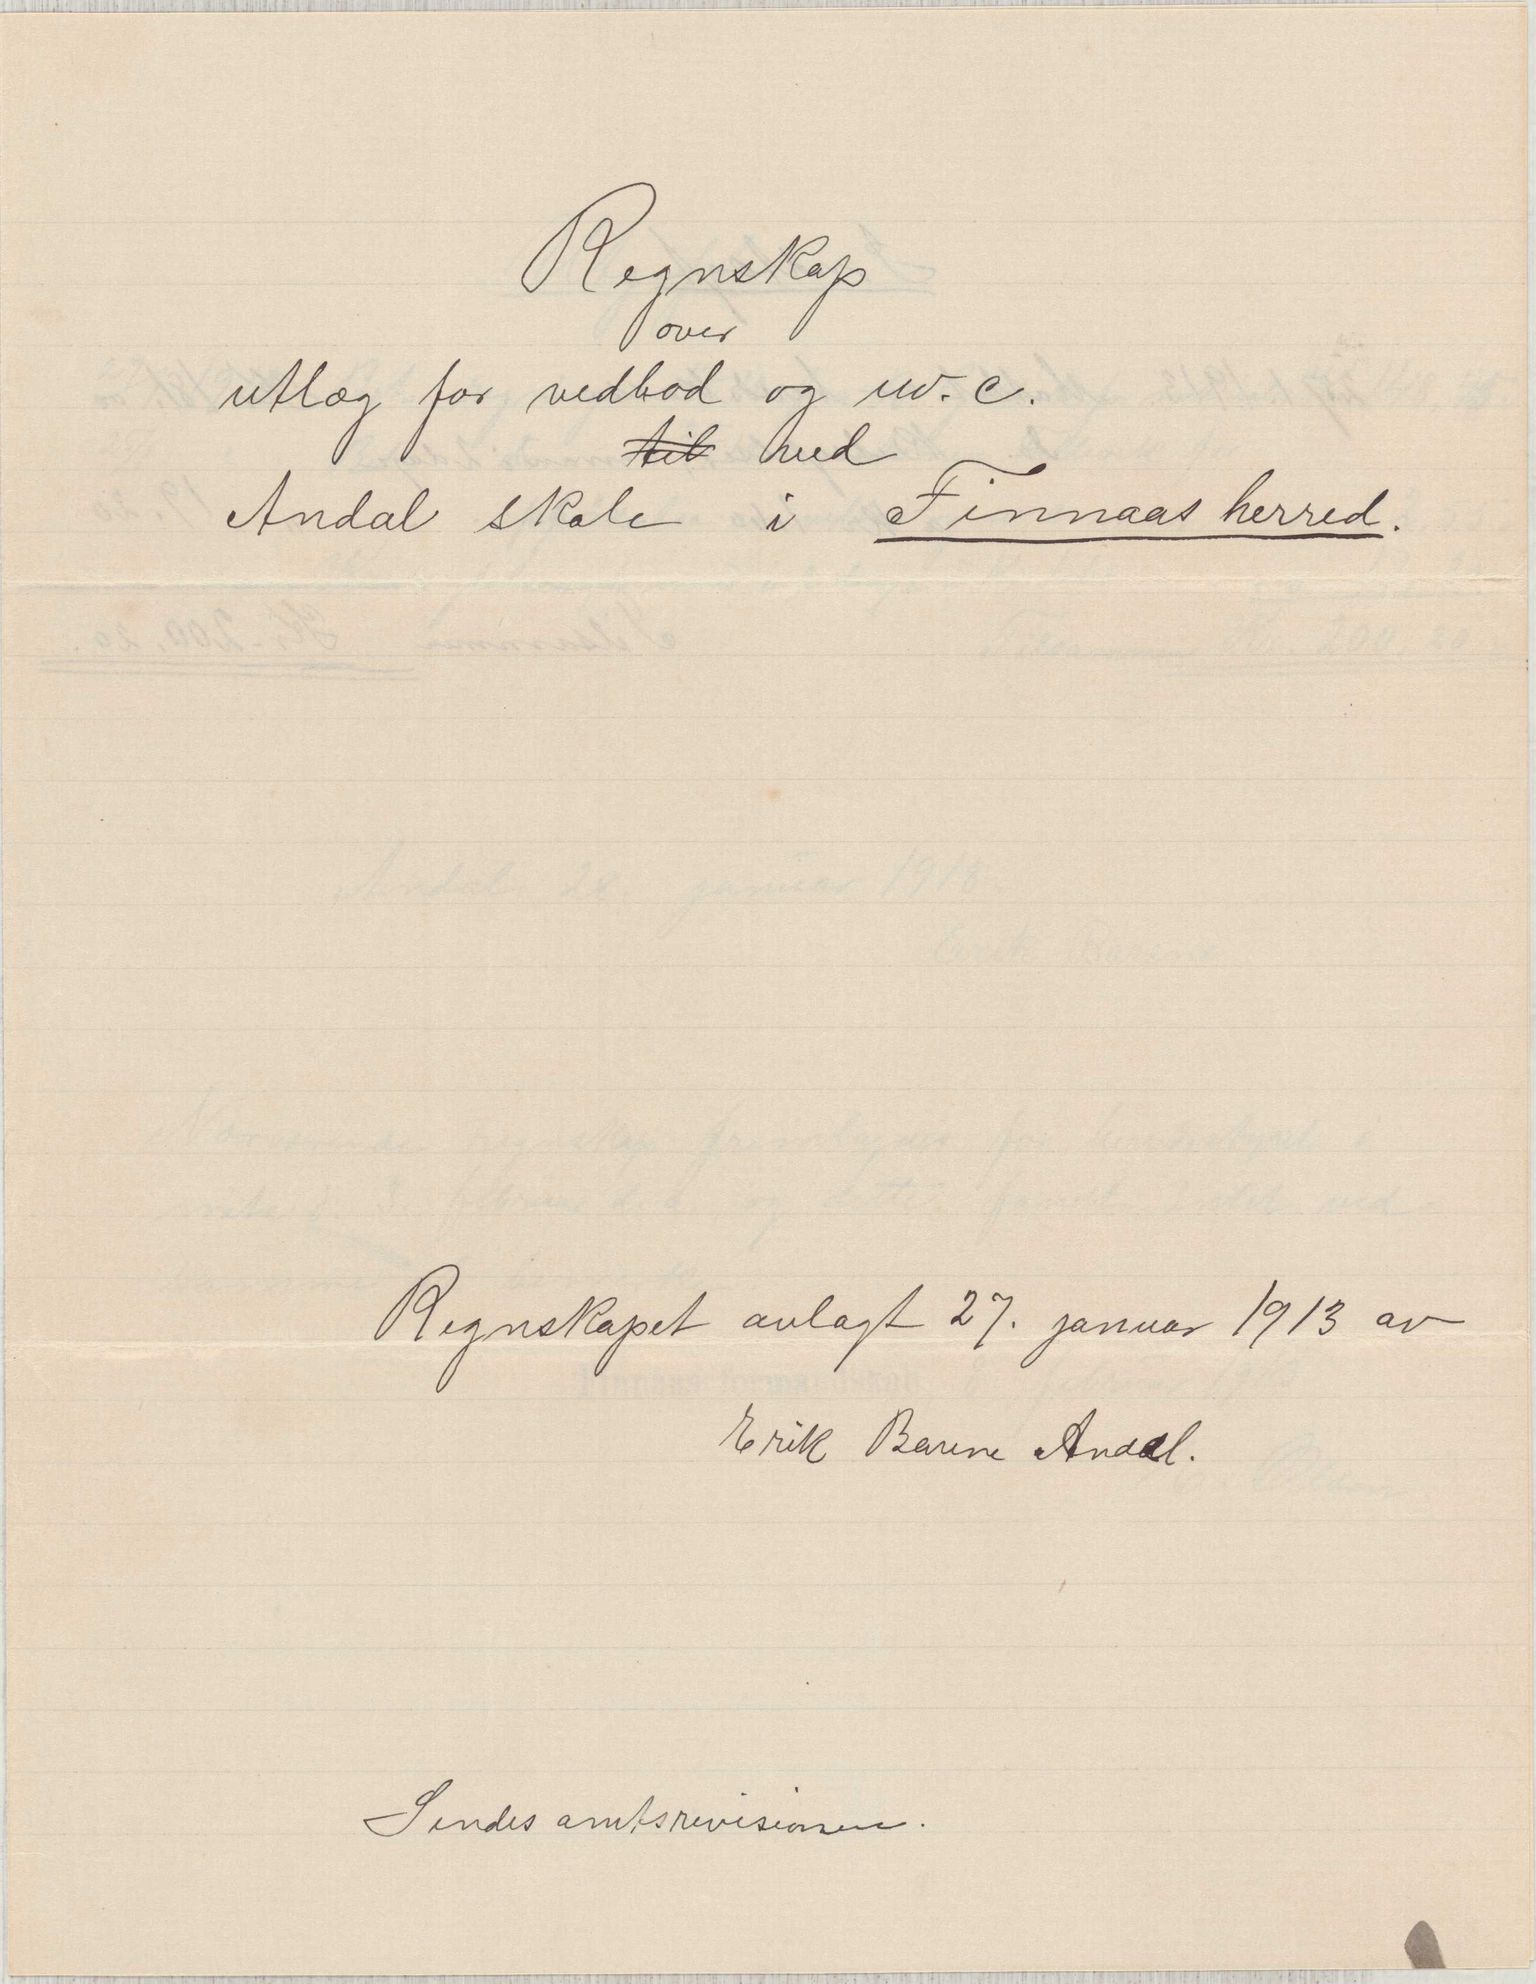 Regnskap
over
utlæg for vedbod og w.c.
til ved
Andal skole i Finnaas herred.
Regnskapet avlagt 27. januar 1913 av
Erik Barene Andal.
Sendes amtsrevisionen.